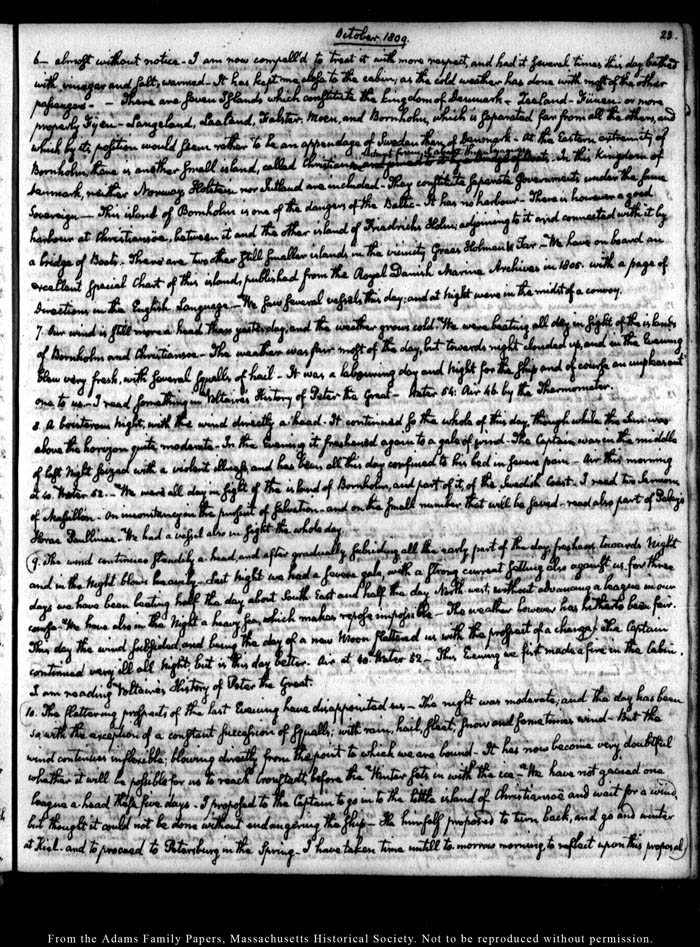 October 1809.
23.
6— almost without notice— I am now compell'd to treat it with more respect, and had it several times this day bathed
with vinegar and salt, warmed— It has kept me close to the cabin, as the cold weather has done with most of the other
passengers— — There are seven Islands which constitute the kingdom of Denmark— Zeeland— Funen— or more
properly Fyen— Langeland, Laaland, Falster, Moen, and Bornholm, which is separated far from all the others, and
which by its position would seem rather to be an appendage of Sweden than of Denmark— At the Eastern extremity of
Bornholm, there is another small island, called Christiansoe, distant from it about In this Kingdom of
Denmark, neither Norway, Holstein nor Jutland are included— They constitute separate Governments under the same
Sovereign— This island of Bornholm is one of the dangers of the Baltic— It has no harbour— There is however a good
harbour at Christiansoe, between it and the other island of Friedrichs Holm; adjoining to it and connected with it by
a bridge of Boats. There are two other still smaller islands in the vicinity Graes Holmen & Tar— We have on board an
excellent special Chart of this island, published from the Royal Danish Marine Archives in 1805. with a page of
directions in the English Language— We saw several vessels this day; and at Night were in the midst of a convoy.
7. Our wind is still more a head than yesterday, and the weather grows cold. We were beating all day in sight of the islands
of Bornholm and Christiansoe— The weather was fair most of the day, but towards night clouded up, and in the Evening
blew very fresh, with several squalls of hail— It was a labouring day and Night for the Ship and of course an unpleasant
one to us— I read something in Voltaire's History of Peter the Great— Water 54. Air 46 by the Thermometer.
8. A boisterous Night, with the wind directly a-head— It continued so the whole of this day, though while the Sun was
above the horizon quite moderate— In the Evening it freshened again to a gale of wind— The Captain was in the middle
of last Night seized with a violent illness, and has been all this day confined to his bed in severe pain— Air this morning
at 40. Water 52.— We were all day in sight of the island of Bornholm, and part of it, of the Swedish Coast. I read two Sermons
of Massillon. On inconstancy in the pursuit of Salvation— and on the small number that will be saved— read also part of Paley's
Horae Paulinae— We had a vessel also in sight the whole day.
9. The wind continues steadily a head, and after gradually subsiding all the early part of the day, freshens towards Night
and in the Night blows heavily— Last Night we had a severe gale, with a strong current setting also against us, for three
days we have been beating half the day about South East and half the day North-west, without advancing a league in our
course— We have also in the Night a heavy Sea, which makes repose impossible— The weather however has hitherto been fair.
This day the wind subsided, and being the day of a new Moon flattered us with the prospect of a change. The Captain
continued very ill all Night, but is this day better. Air at 40. Water 52— This Evening we first made a fire in the Cabin.
I am reading Voltaire's History of Peter the Great.
10. The flattering prospects of the last Evening have disappointed us— The night was moderate, and the day has been
so, with the exception of a constant succession of squalls; with rain, hail, sleet, snow and sometimes wind— But the
wind continues inflexible; blowing directly from the point to which we are bound— It has now become very doubtful
whether it will be possible for us to reach Cronstadt, before the Winter sets in with the ice— We have not gained one
league a-head these five days— I proposed to the Captain to go in to the little island of Christiansoe and wait for a wind,
but thought it could not be done without endangering the Ship— He himself proposed to turn back, and go and winter
at Kiel— and to proceed to Petersburg in the Spring— I have taken time untill to-morrow morning, to reflect upon this proposal
From the Adams Family Papers, Massachusetts Historical Society. Not to be reproduced without permission.